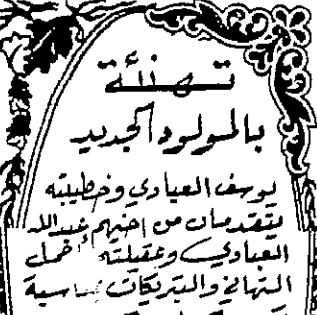 تهنئة
بالمولود الجديد
يوسف العيادي وخطيبته
يتقدمان من اخيهم عبدالله
العيادي وعقيلته أجمل
التهاني والتبريكات بمناسبة